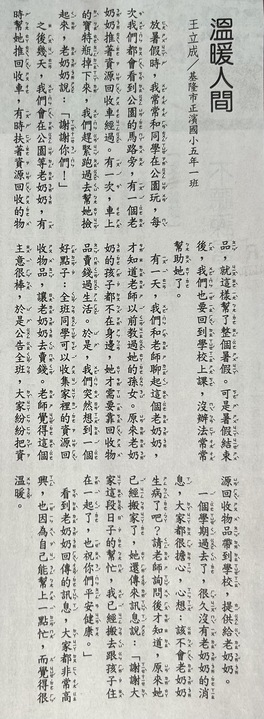 溫暖人間
王立成/基隆市正濱國小五年一班
放暑假時,我常常和同學在公園玩,每
次我們都會看到公園的馬路旁,有一個老
奶奶推著資源回收車經過。有一次,車上
的寶特瓶掉下來,我們趕緊跑過去幫她撿
起來,老奶奶說:「謝謝你們!」
之後幾天,我們會在公園等老奶奶,有
時幫她推回收車,有時扶著資源回收的物
品,就這樣幫了整個暑假。可是暑假結束
後,我們也要回到學校上課,沒辦法常常
幫助她了。
有一天,我們和老師聊起這個老奶奶,
才知道老師以前教過她的孫女。原來老奶
奶的孩子都不在身邊,她才需要靠回收物
品賣錢過生活。於是,我們突然想到一個
好點子:全班同學可以收集家裡的資源回
收物品,讓老奶奶去賣錢。老師覺得這個
主意很棒,於是公告全班,大家紛紛把資
源回收物品帶到學校,提供給老奶奶。
一個學期過去了,很久沒有老奶奶的消
息,大家都很擔心,心想:該不會老奶奶
生病了吧?請老師詢問後才知道,原來她
已經搬家了,她還傳來訊息說:「謝謝大
家這段日子的幫忙,我已經搬去跟孩子住
在一起了,也祝你們平安健康。」
看到老奶奶回傳的訊息,大家都非常高
興,也因為自己能幫上一點忙,而覺得很
溫暖。